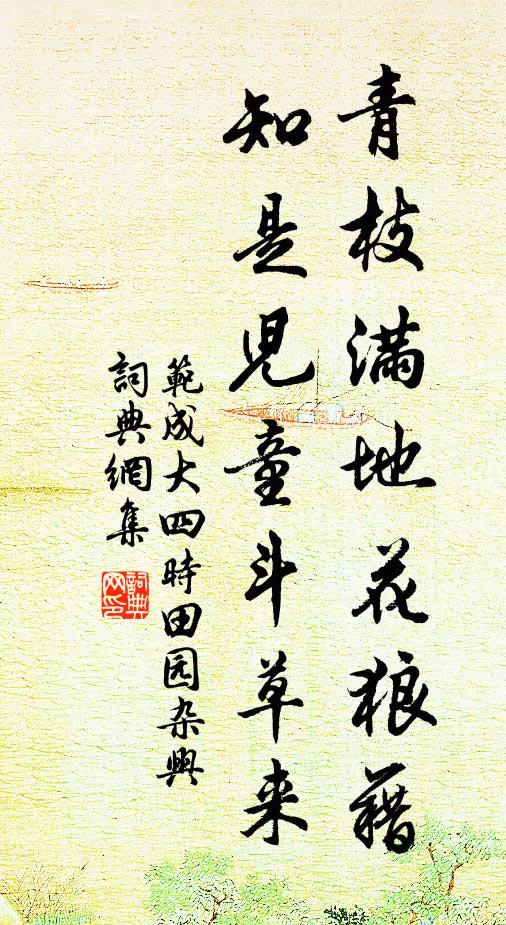 青枝满地花狼籍
知是兒童斗草来
範成大四時田园杂興
詞典網集
詞典网印